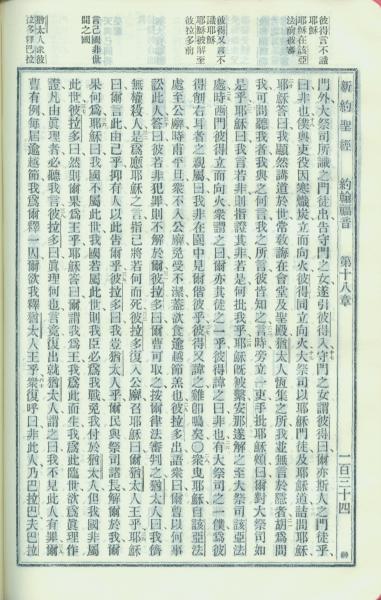 新約聖經 約翰福音 第十八章 一百三十四
彼得言不識
耶穌
耶穌在該亞
法前被審
彼得又言不
識耶穌
耶穌被解至
彼拉多前
言己國非世
間之國
猶太人求彼
拉多釋巴拉
門外大祭司所識之門徒出告守門之女遂引彼得入守門之女謂彼得曰爾亦斯人之門徒乎
曰非也僕與吏役因寒熾炭立而向火彼得同立向火大祭司以耶穌門徒及耶穌道詰問耶穌
耶穌答曰我顯然講道於世常教誨在會堂及聖殿猶太人恆集之所我並無言於隱者胡爲問
我可問聽我者我與之何言我之所言彼皆知之言時旁立一吏手批耶穌頰曰爾對大祭司如
是乎耶穌曰我言若非則指證其非若是何批我乎耶穌既被繫安那遂解之至大祭司該亞法
處時西門彼得立而向火衆謂之曰爾亦其徒之一乎彼得諱之曰非也有大祭司之一僕爲彼
得削右耳者之親屬曰我非在園中見爾偕彼乎彼得又諱之雞卽鳴矣○衆曳耶穌自該亞法
處至公廨時甫平旦衆不入公廨免受不潔蓋欲食逾越節羔也彼拉多出語衆曰爾曹以何事
訟此人答曰彼若非犯罪則不解於爾彼拉多曰爾曹可取之按爾律法審判之猶太人曰我儕
無權殺人是爲應耶穌之言指己將若何而死彼拉多復入公廨召耶穌曰爾猶太人王乎耶穌
曰爾言此由己乎抑有人以此告爾乎彼拉多曰我豈猶太人乎爾民與祭司諸長解爾於我爾
果何爲耶穌曰我國不屬此世我國若屬此世則我臣必爲我戰免我付於猶太人但我國非屬
此世彼拉多曰然則爾果爲王乎耶穌答曰爾謂我爲王我爲此而生我爲此臨世欲爲眞理作
證凡由眞理者必聽我言彼拉多曰眞理何也言竟復出就猶太人謂之曰我不見此人有罪爾
曹有例每屆逾越節我爲爾釋一囚爾欲我釋猶太人王乎衆復呼曰非此人乃巴拉巴夫巴拉